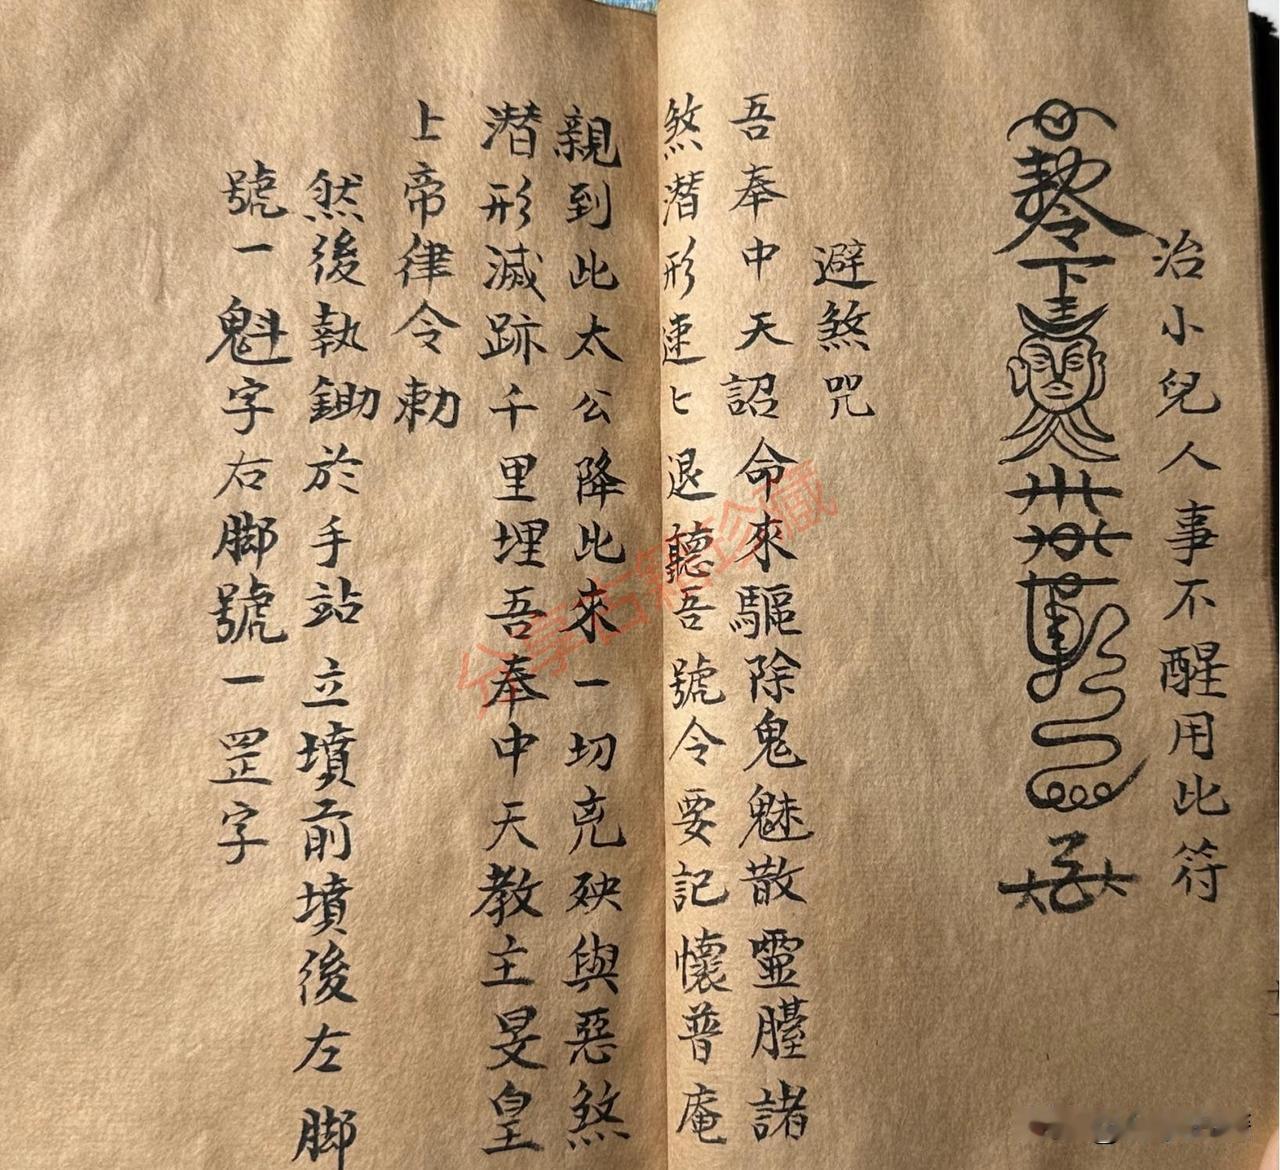 治小兒人事不醒用此符
勅令下
避煞咒
吾奉中天詔命來驅除鬼魅散靈臺諸
煞潛形速匕退聽吾號令要記懷普庵
親到此太公降此來一切克殃與惡煞
潛形滅跡千里埋吾奉中天教主旻皇
上帝律令勅
然後執鋤於手站立墳前墳後左脚
號一魁字右脚號一罡字
分享古籍珍藏